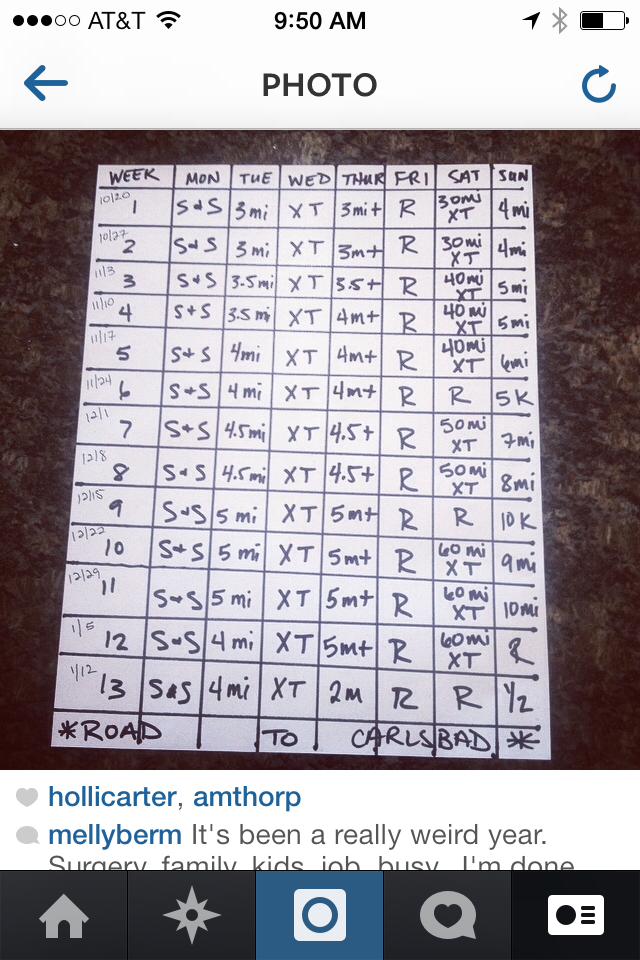 AT&T 9:50 AM
PHOTO
WEEK MON TUE WED THUR FRI SAT SUN
10/20 1 S&S 3mi XT 3mi+ R 30mi XT 4mi
10/27 2 S&S 3mi XT 3m+ R 30mi XT 4mi
11/3 3 S&S 3.5mi XT 3.5+ R 40mi XT 5mi
11/10 4 S+S 3.5mi XT 4m+ R 40mi XT 5mi
11/17 5 S+S 4mi XT 4m+ R 40mi XT 6mi
11/24 6 S+S 4mi XT 4m+ R R 5K
12/1 7 S+S 4.5mi XT 4.5+ R 50mi XT 7mi
12/8 8 S&S 4.5mi XT 4.5+ R 50mi XT 8mi
12/15 9 S&S 5mi XT 5m+ R R 10K
12/22 10 S+S 5mi XT 5m+ R 60mi XT 9mi
12/29 11 S+S 5mi XT 5m+ R 60mi XT 10mi
1/5 12 S&S 4mi XT 5m+ R 60mi XT R
1/12 13 S&S 4mi XT 2m R R 1/2
*ROAD TO CARLSBAD *
hollicarter, amthorp
mellyberm It's been a really weird year.
Surgery, family, kids, job, busy. I'm done